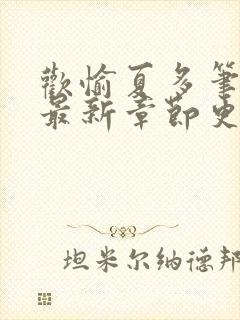 歡愉夏多筆
最新章節史
坦米尔纳德邦